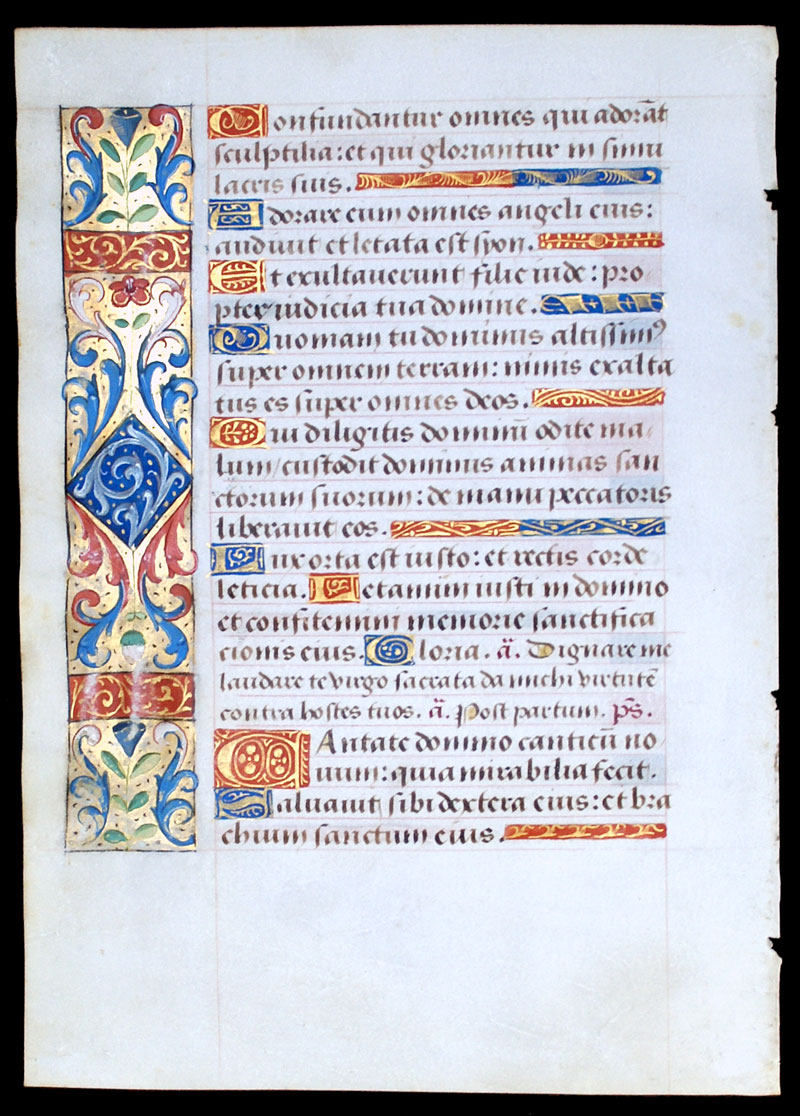 Confundantur omnes qui adorāt
sculptilia: et qui gloriantur in simu
lacris suis.
Adorare eum omnes angeli eius:
audiuit et letata est syon.
Et exultauerunt filie iude: pro-
pter iudicia tua domine.
Quoniam tu dominus altissimꝰ
super omnem terram: nimis exalta
tus es super omnes deos.
Qui diligitis dominū odite ma-
lum/custodit dominus animas san
ctorum suorum: de manu peccatoris
liberauit eos.
Lux orta est iusto: et rectis corde
leticia. Letamini iusti in domino
et confitemini memorie sanctifica
cionis eius. Gloria. ā. Dignare me
laudare te virgo sacrata da michi virtutē
contra hostes tuos. ā. Post partum. ps̄.
CAntate domino canticū no-
uum: quia mirabilia fecit.
Saluauit sibi dextera eius: et bra
chium sanctum eius.